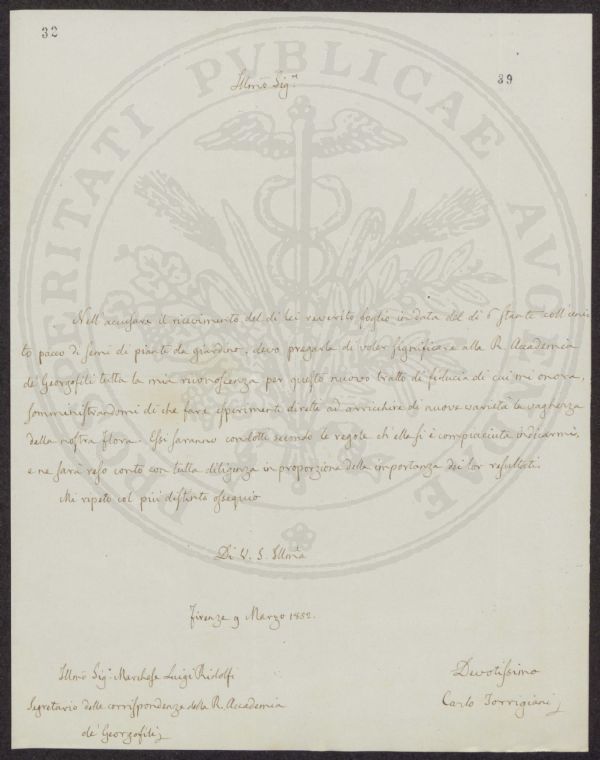 32
39
Illmo Sigre
Nell'accusare il ricevimento del di Lei reverito foglio in data del dì 6 stante coll'uni-
to pacco di semi di piante da giardino, devo pregarla di voler significare alla R. Accademia
de' Georgofili tutta la mia riconoscenza per questo nuovo tratto di fiducia di cui mi onora,
somministrandomi di che fare esperimenti diretti ad arricchire di nuove varietà la vaghezza
della nostra Flora. Essi saranno condotti secondo le regole ch'ella si è compiaciuta indicarmi,
e ne sarà reso conto con tutta diligenza in proporzione della importanza dei lor resultati.
Mi ripeto col più distinto ossequio
Di V. S. Illma
Firenze 9 Marzo 1852.
Illmo Sigr Marchese Luigi Ridolfi
Segretario delle corrispondenze della R. Accademia
de' Georgofili
Devotissimo
Carlo Torrigiani
PROSPERITATI PVBLICAE AVGENDAE